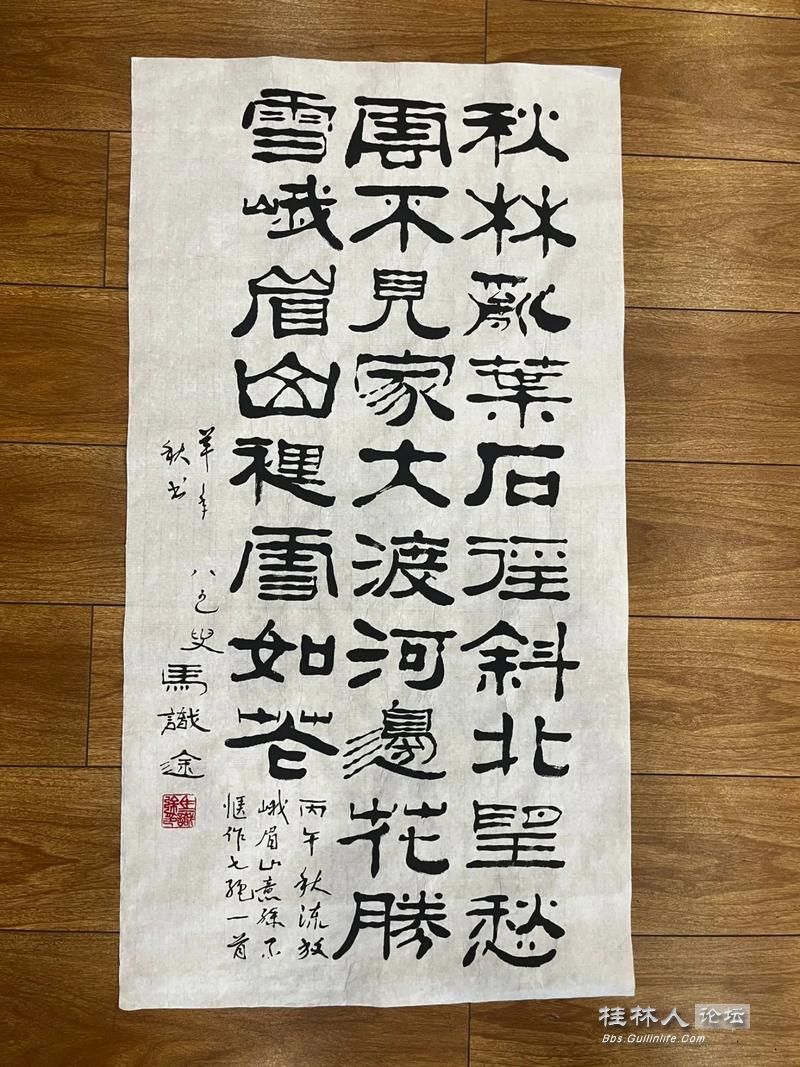 秋林亂葉石徑斜北望愁
雲不見家大渡河邊花勝
雪峨眉山裡雪如花
丙午秋流放
峨眉山意殊不
惬作七绝一首
羊年
秋书
叟馬識途
桂林人论坛
Bbs.Guilinlife.Com